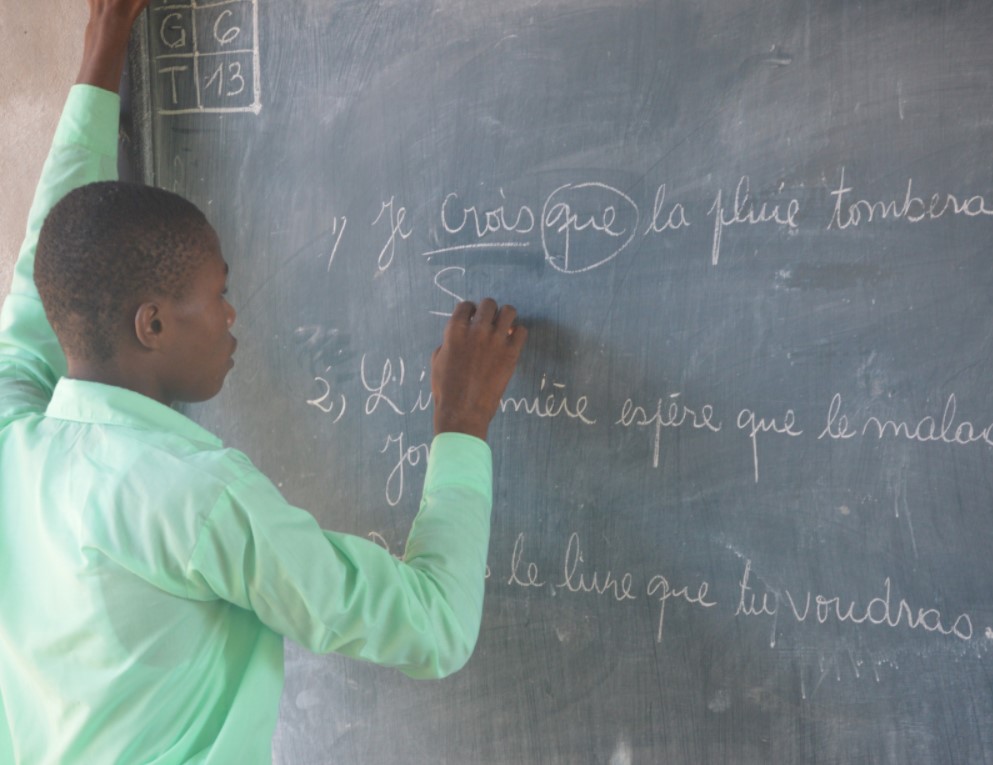 G 6
T 13
1) Je crois que la pluie tombera
S
2) espère que le
le livre que tu voudras.